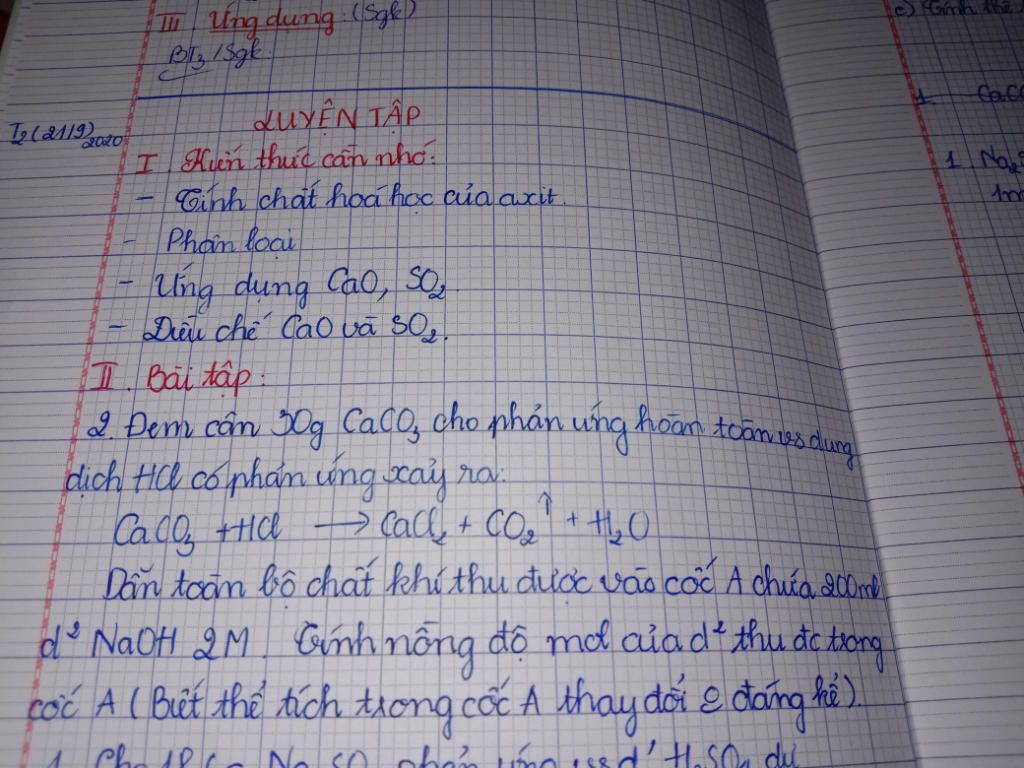 III Ứng dụng (Sgk)
BT3/Sgk
T2(21/9)2020
LUYỆN TẬP
I Kiến thức cần nhớ:
- Tính chất hoá học của axit.
- Phân loại
- Ứng dụng CaO, SO2
- Điều chế CaO và SO2.
II. Bài tập:
2. Đem cân 30g CaCO3 cho phản ứng hoàn toàn vs dung
dịch HCl có phản ứng xảy ra:
CaCO3 + HCl → CaCl2 + CO2↑ + H2O
Dẫn toàn bộ chất khí thu được vào cốc A chứa 200ml
d² NaOH 2M. Tính nồng độ mol của d² thu đc trong
cốc A (Biết thể tích trong cốc A thay đổi đáng kể).
1
1 Na2